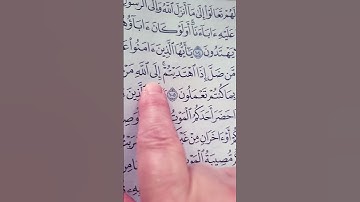 لَهُمْ تَعَالَوْا۟ إِلَىٰ مَآ أَنزَلَ ٱللَّهُ وَإِلَى ٱلرَّسُولِ
عَلَيْهِ ءَابَآءَنَآ أَوَلَوْ كَانَ ءَابَآؤُهُمْ
يَهْتَدُونَ ١٠٤ يَٰٓأَيُّهَا ٱلَّذِينَ ءَامَنُوا۟ عَ
مَّن ضَلَّ إِذَا ٱهْتَدَيْتُمْ إِلَى ٱللَّهِ مَرْ
بِمَا كُنتُمْ تَعْمَلُونَ ١٠٥ ٱلَّذِينَ
حَضَرَ أَحَدَكُمُ ٱلْمَوْتُ
أَوْ ءَاخَرَانِ مِنْ غَ
مُّصِيبَةُ ٱلْمَوْتِ